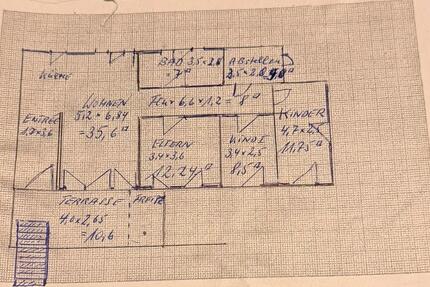 KÜCHE
BAD 3,5 x 2,0
= 7 □
Abstellen
2,5 x 2,0
ENTREE
1,7 x 3,6
WOHNEN
5,2 x 6,84
= 35,6 □
FLUR 6,6 x 1,2 = 8 □
ELTERN
3,4 x 3,6
12,24 □
KINDE
3,4 x 2,5
8,5 □
KINDER
4,7 x 2,5
11,75 □
TERRASSE
4,0 x 2,65
= 10,6